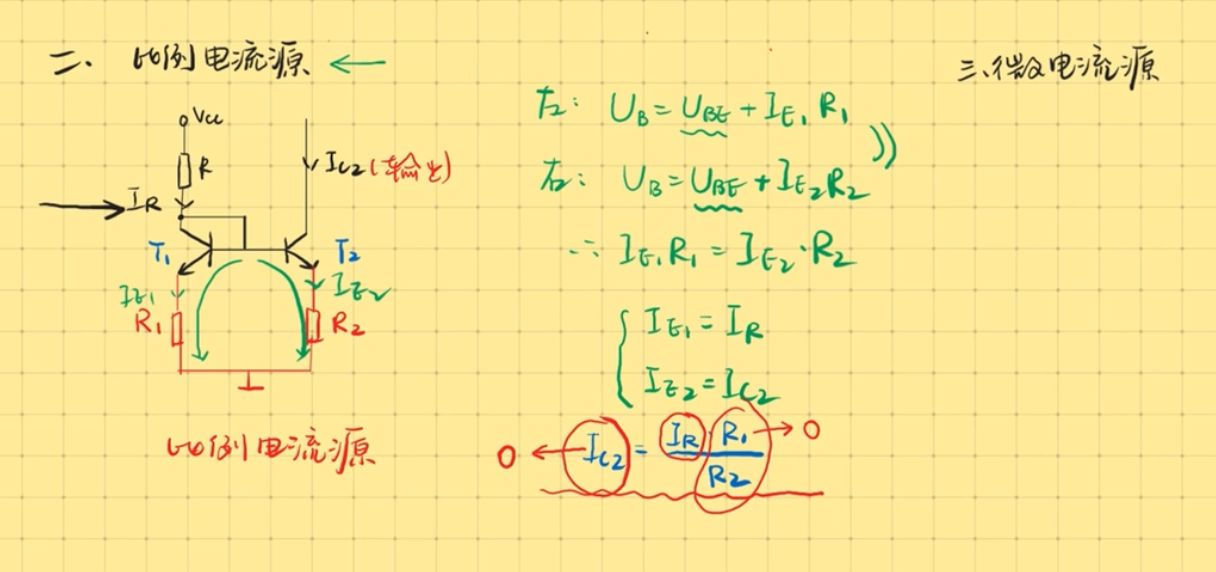 二、比例电流源 ←
Vcc
R
IR
IC2(输出)
T1
T2
IE1
IE2
R1
R2
比例电流源
左: UB=UBE+IE1R1
右: UB=UBE+IE2R2
∴ IE1R1=IE2·R2
{ IE1=IR
IE2=IC2
0 ← IC2 = IR·R1/R2 → 0
三、微电流源